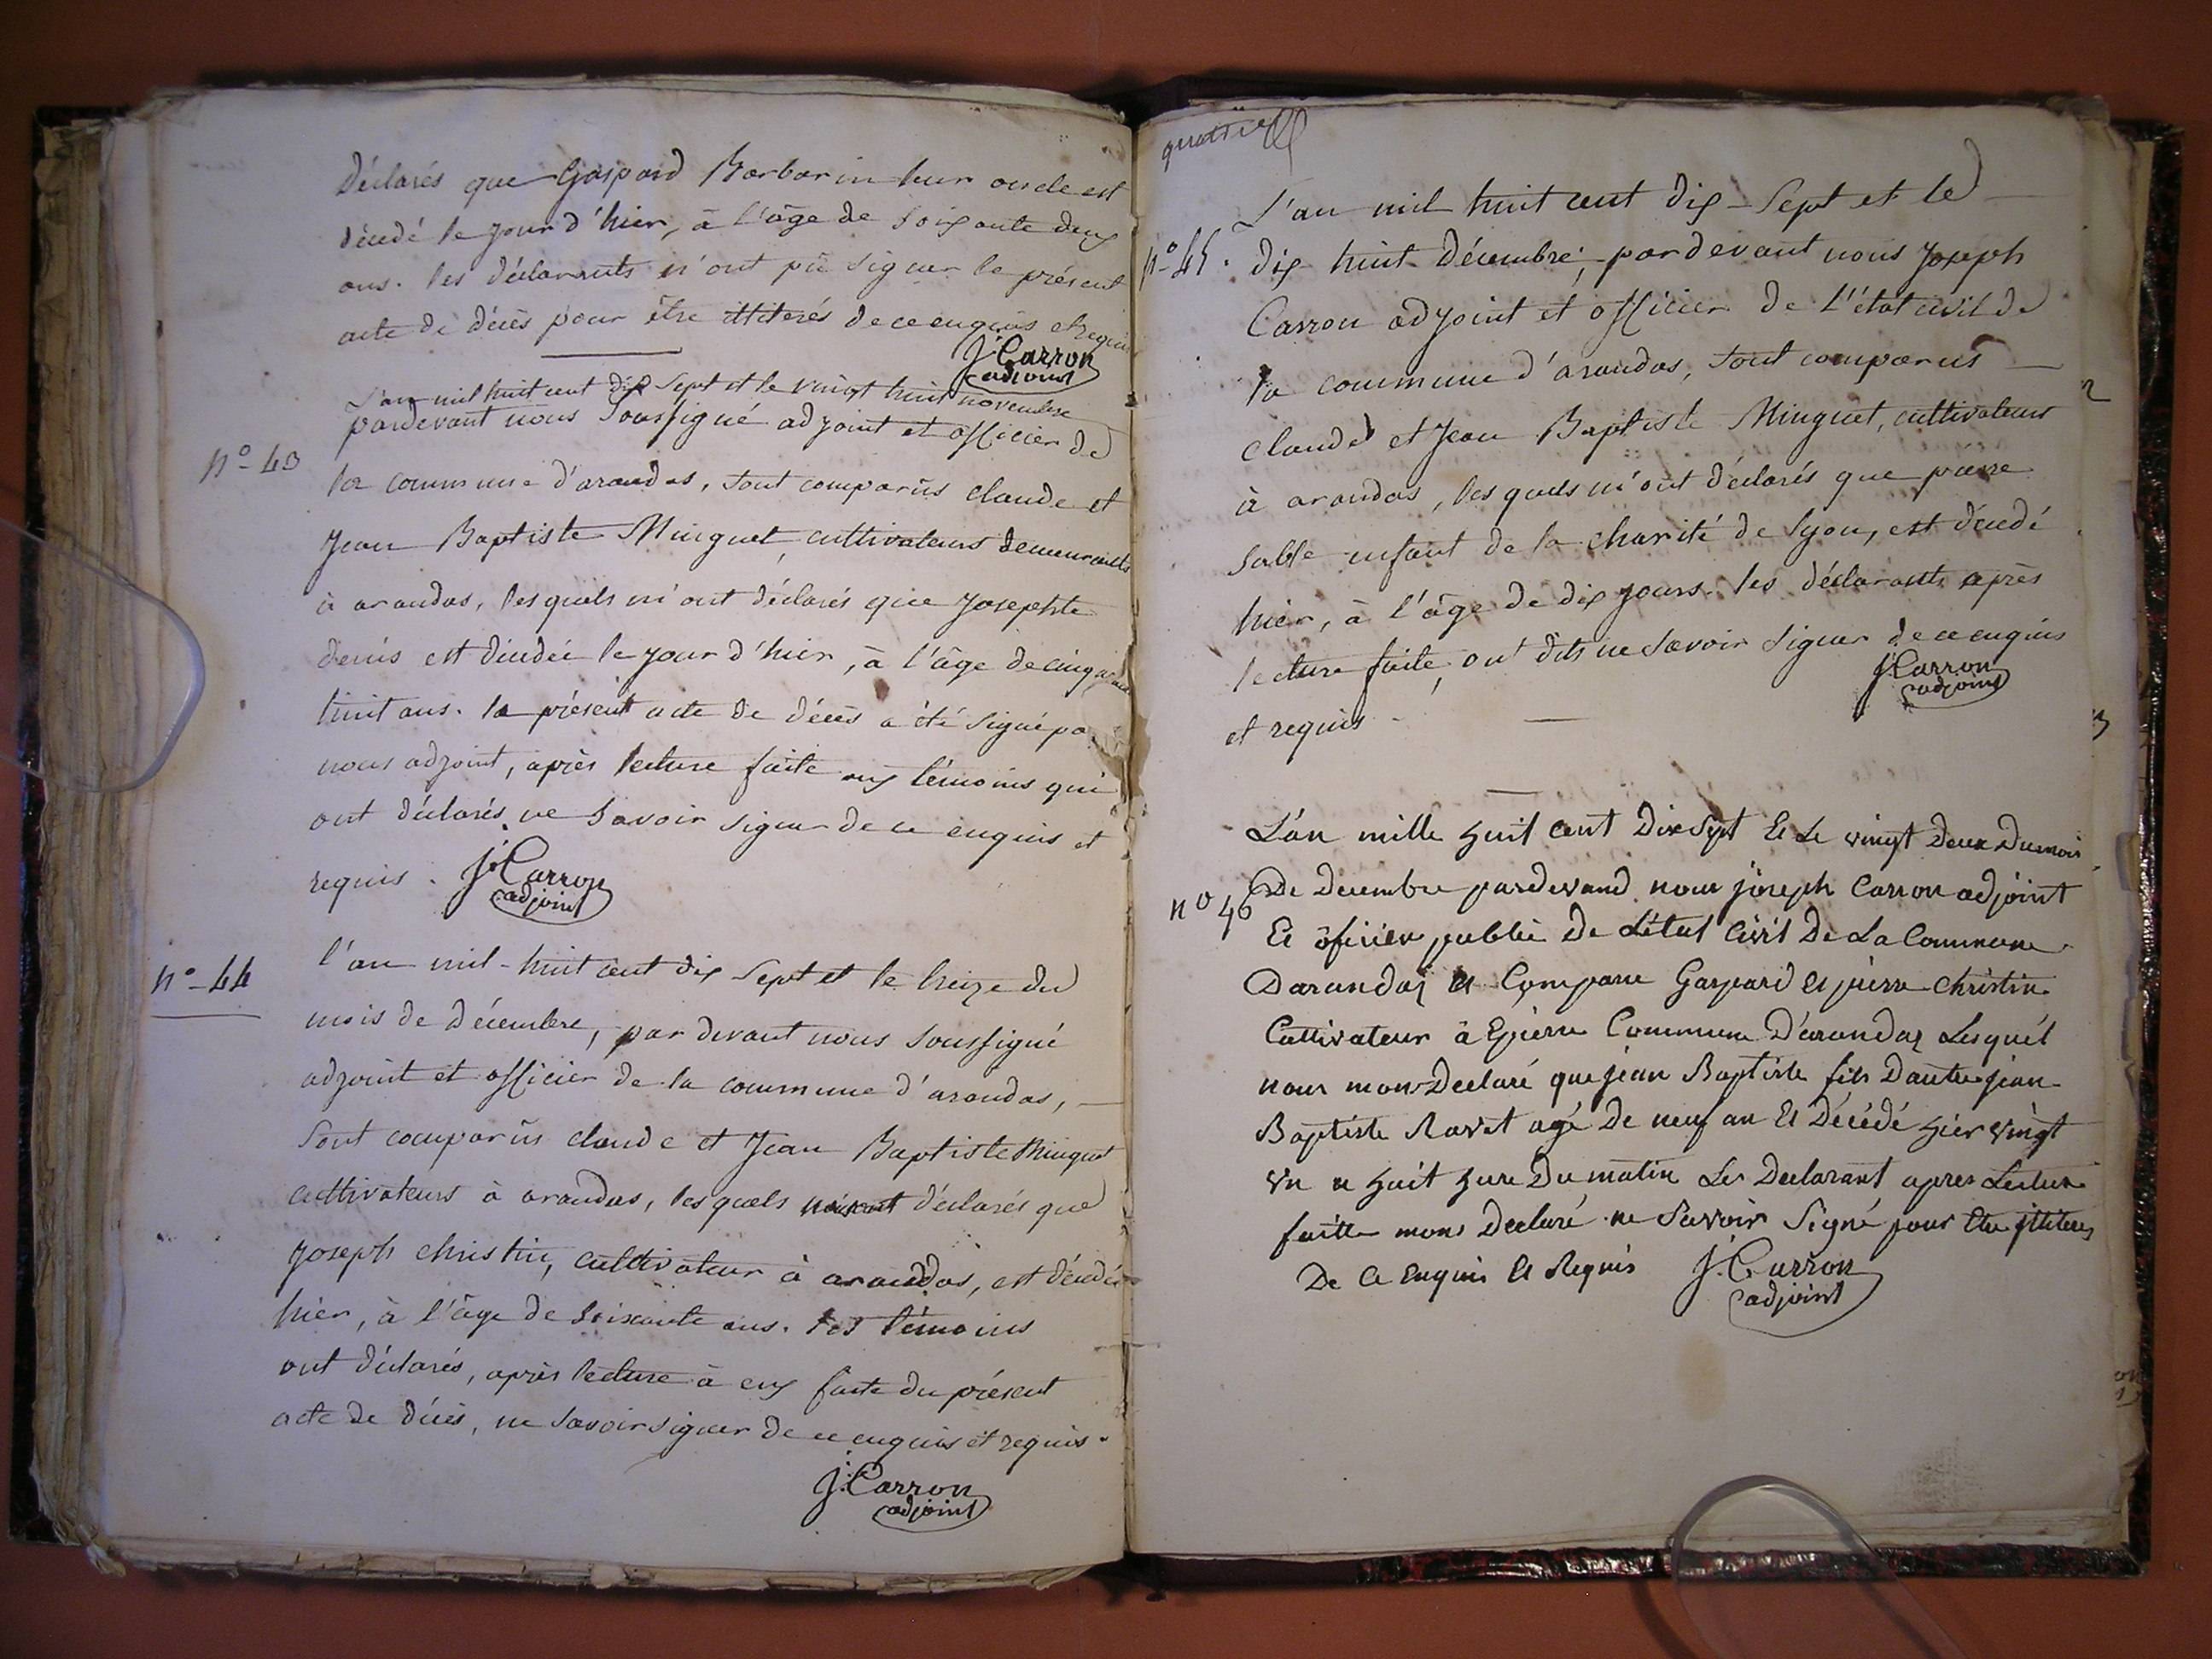 Déclarés que Gaspard Barbarin leur oncle est
décedé le jour d'hier, à l'âge de soixante deux
ans. les déclarants n'ont pû signer le présent
acte de décès pour être illiterés de ce enquis et requis
J. Carron
adjoint
L'an mil huit cent dix sept et le vingt huit novembre
pardevant nous soussigné adjoint et officier de
n° 43
la commune d'arandas, sont comparûs claude et
Jean Baptiste Minguet, cultivateurs demeurants
à arandas, lesquels m'ont déclarés que Josephte
denis est décédée le jour d'hier, à l'âge de cinquante
huit ans. le présent acte de décès a été signé par
nous adjoint, après lecture faite aux témoins qui
ont déclarés ne savoir signer de ce enquis et
requis. J. Carron
adjoint
n° 44
l'an mil-huit cent dix sept et le treize du
mois de décembre, par devant nous soussigné
adjoint et officier de la commune d'arandas,
sont comparûs claude et Jean Baptiste Minguet
cultivateurs à arandas, lesquels m'ont déclarés que
Joseph christin, cultivateur à arandas, est décédé
hier, à l'âge de soixante ans. les témoins
ont déclarés, après lecture à eux faite du présent
acte de décès, ne savoir signer de ce enquis et requis.
J. Carron
adjoint
L'an mil huit cent dix-sept et le
n° 45. dix huit décembre, pardevant nous Joseph
Carron adjoint et officier de l'état civil de
la commune d'arandas, sont comparus
claude et Jean Baptiste Minguet, cultivateurs
à arandas, lesquels m'ont déclarés que pierre
sable enfant de la charité de lyon, est décédé
hier, à l'âge de dix jours. les déclarants après
lecture faite, ont dits ne savoir signer de ce enquis
et requis.
J. Carron
adjoint
L'an mille huit cent dix sept Et Le vingt deux du mois
n° 46 De Decembre pardevand nous joseph Carron adjoint
Et oficier public De L'état Civil De La Commune
Darandas Et Compare Gaspard Et pierre christin
Cultivateur à Epierre Commune D'arandas Lesquel
nous mons Declaré que jean Baptiste fils Dautre jean
Baptiste Ravet agé De neuf an Et Décédé hier vingt
un a huit hure Du matin Les Declarant apres Lecture
faitte mons Declaré ne Savoir Signé pour Etre illiteres
De Ce Enquis Et Requis J. Carron
adjoint